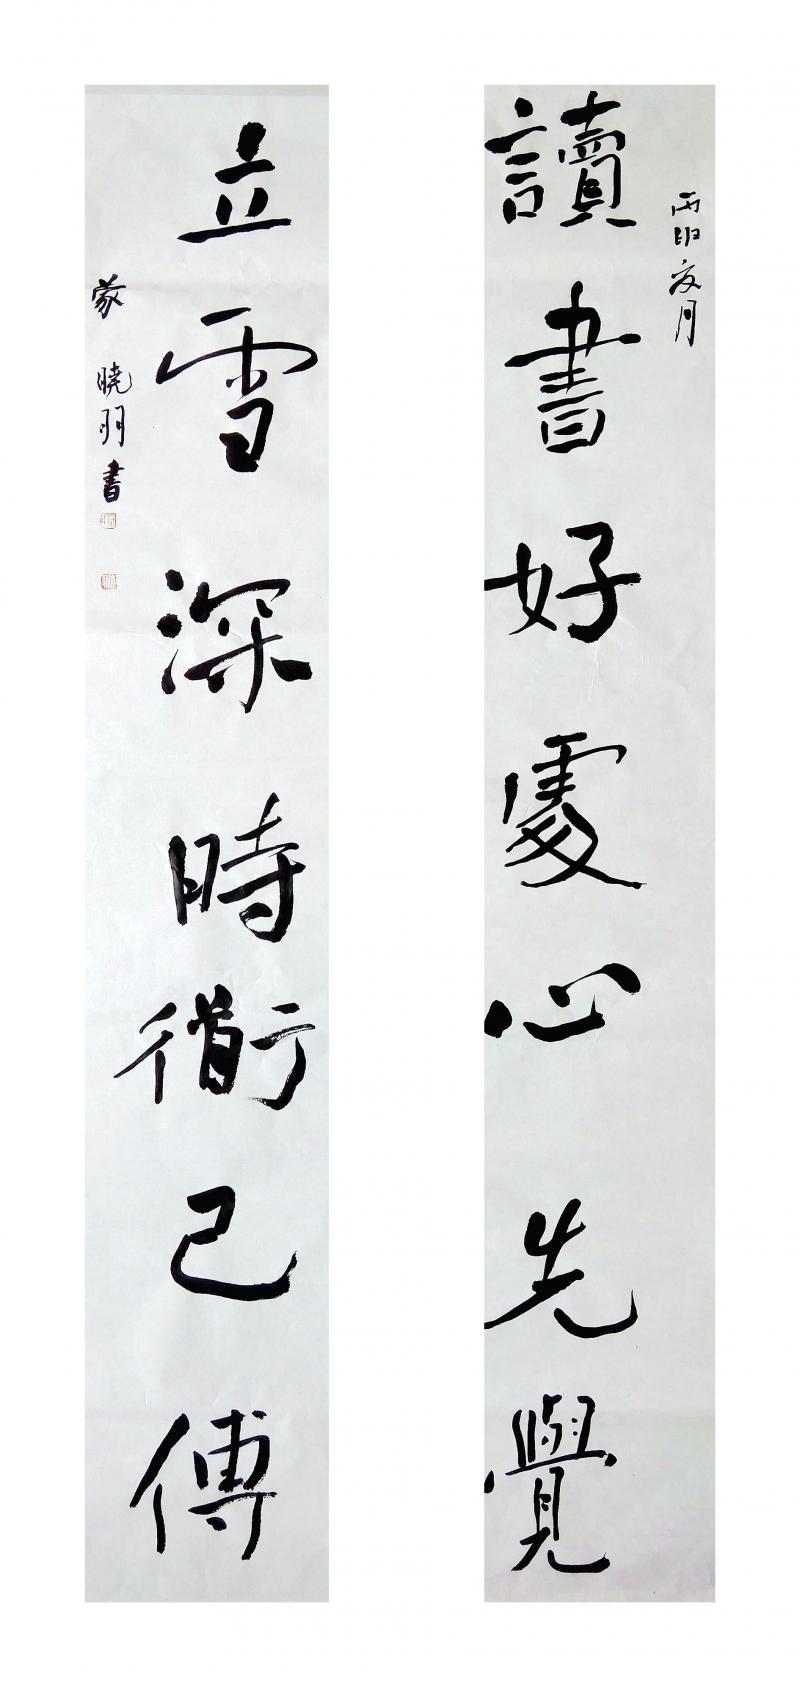 丙申夏月
讀書好處心先覺
立雪深時衜已傳
蒙 晓羽書